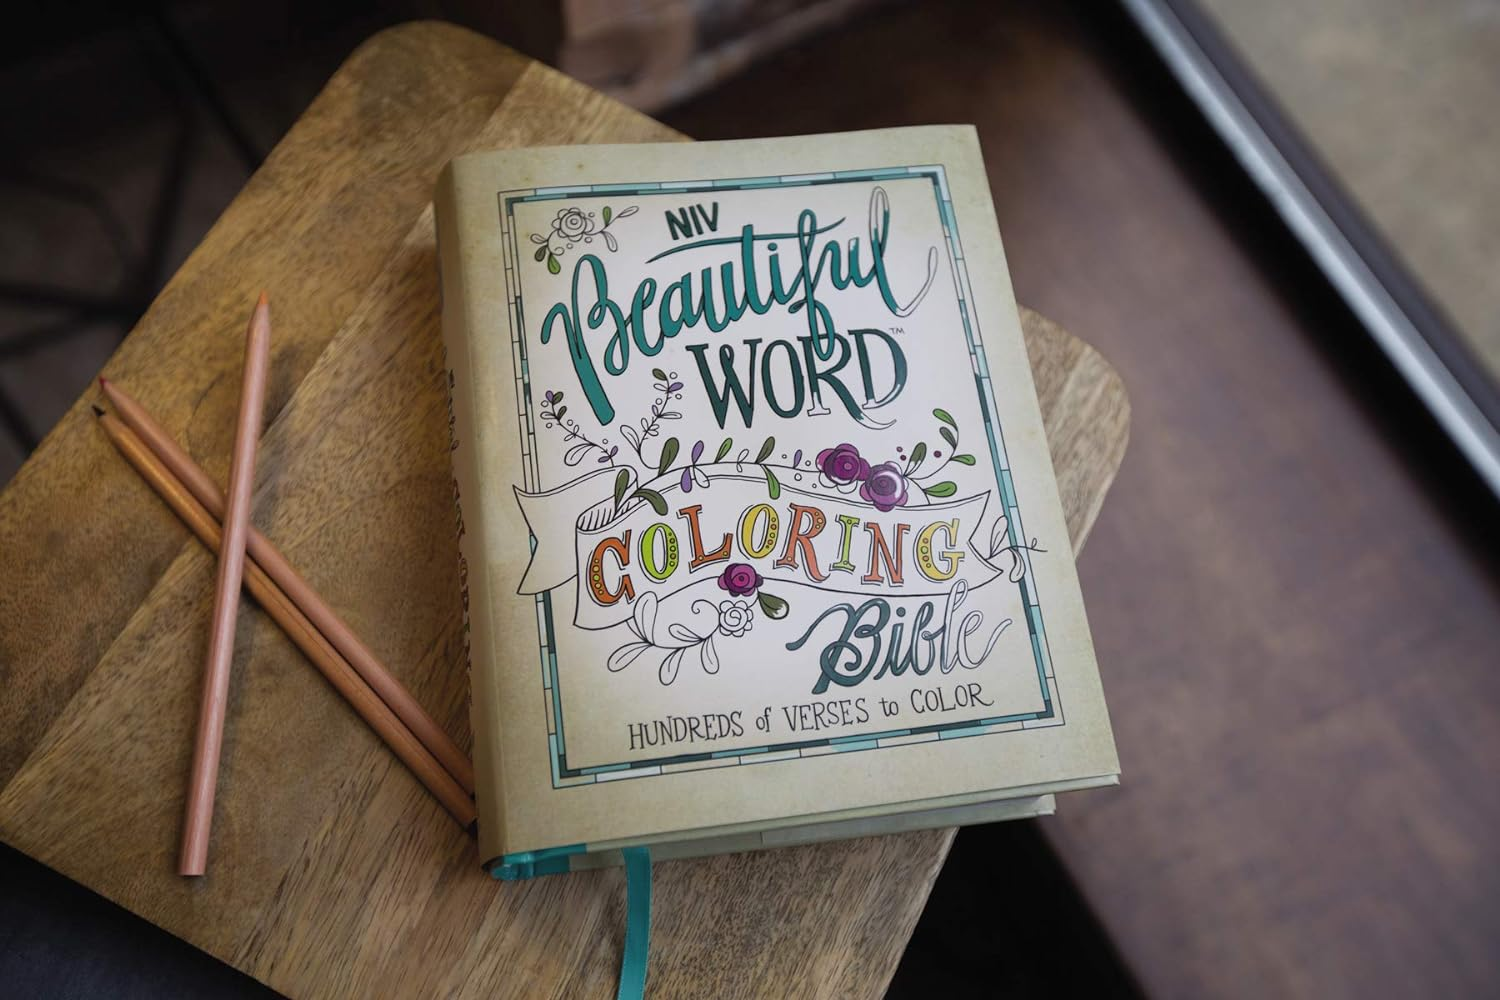 NIV
Beautiful
WORD™
COLORING
Bible
HUNDREDS of VERSES to COLOR